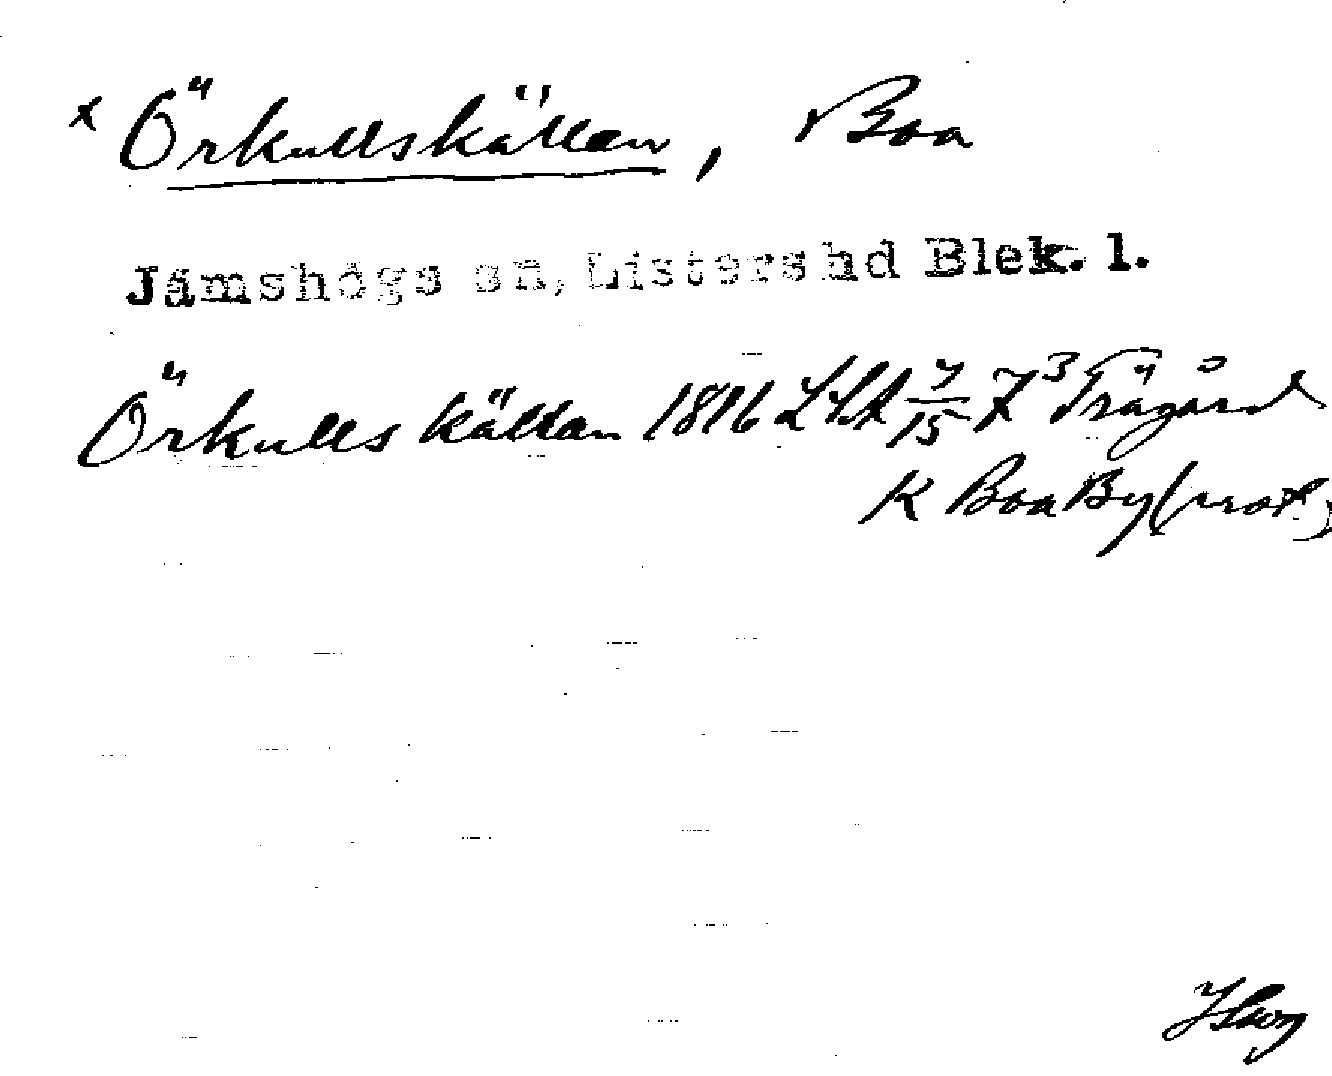 x Örkullskällan, Boa
Jämshögs sn, Listers hd Blek. l.
Örkulls källan 1816 LSA 7/15 7³ Trägård
K Boa By (prot.)